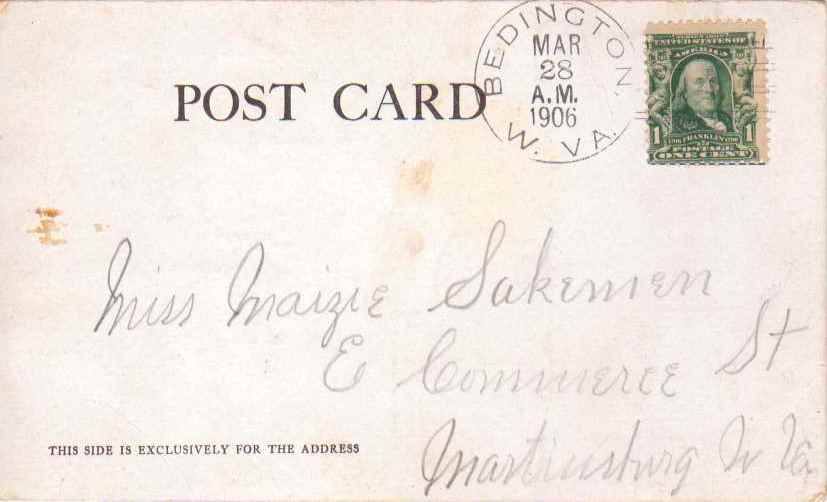 BEDINGTON, W. VA.
MAR
28
A.M.
1906
UNITED STATES OF
AMERICA
1 1
FRANKLIN
POSTAGE
ONE CENT
POST CARD
Miss Maizie Sakemen
E Commerce St
Martinsburg W Va
THIS SIDE IS EXCLUSIVELY FOR THE ADDRESS